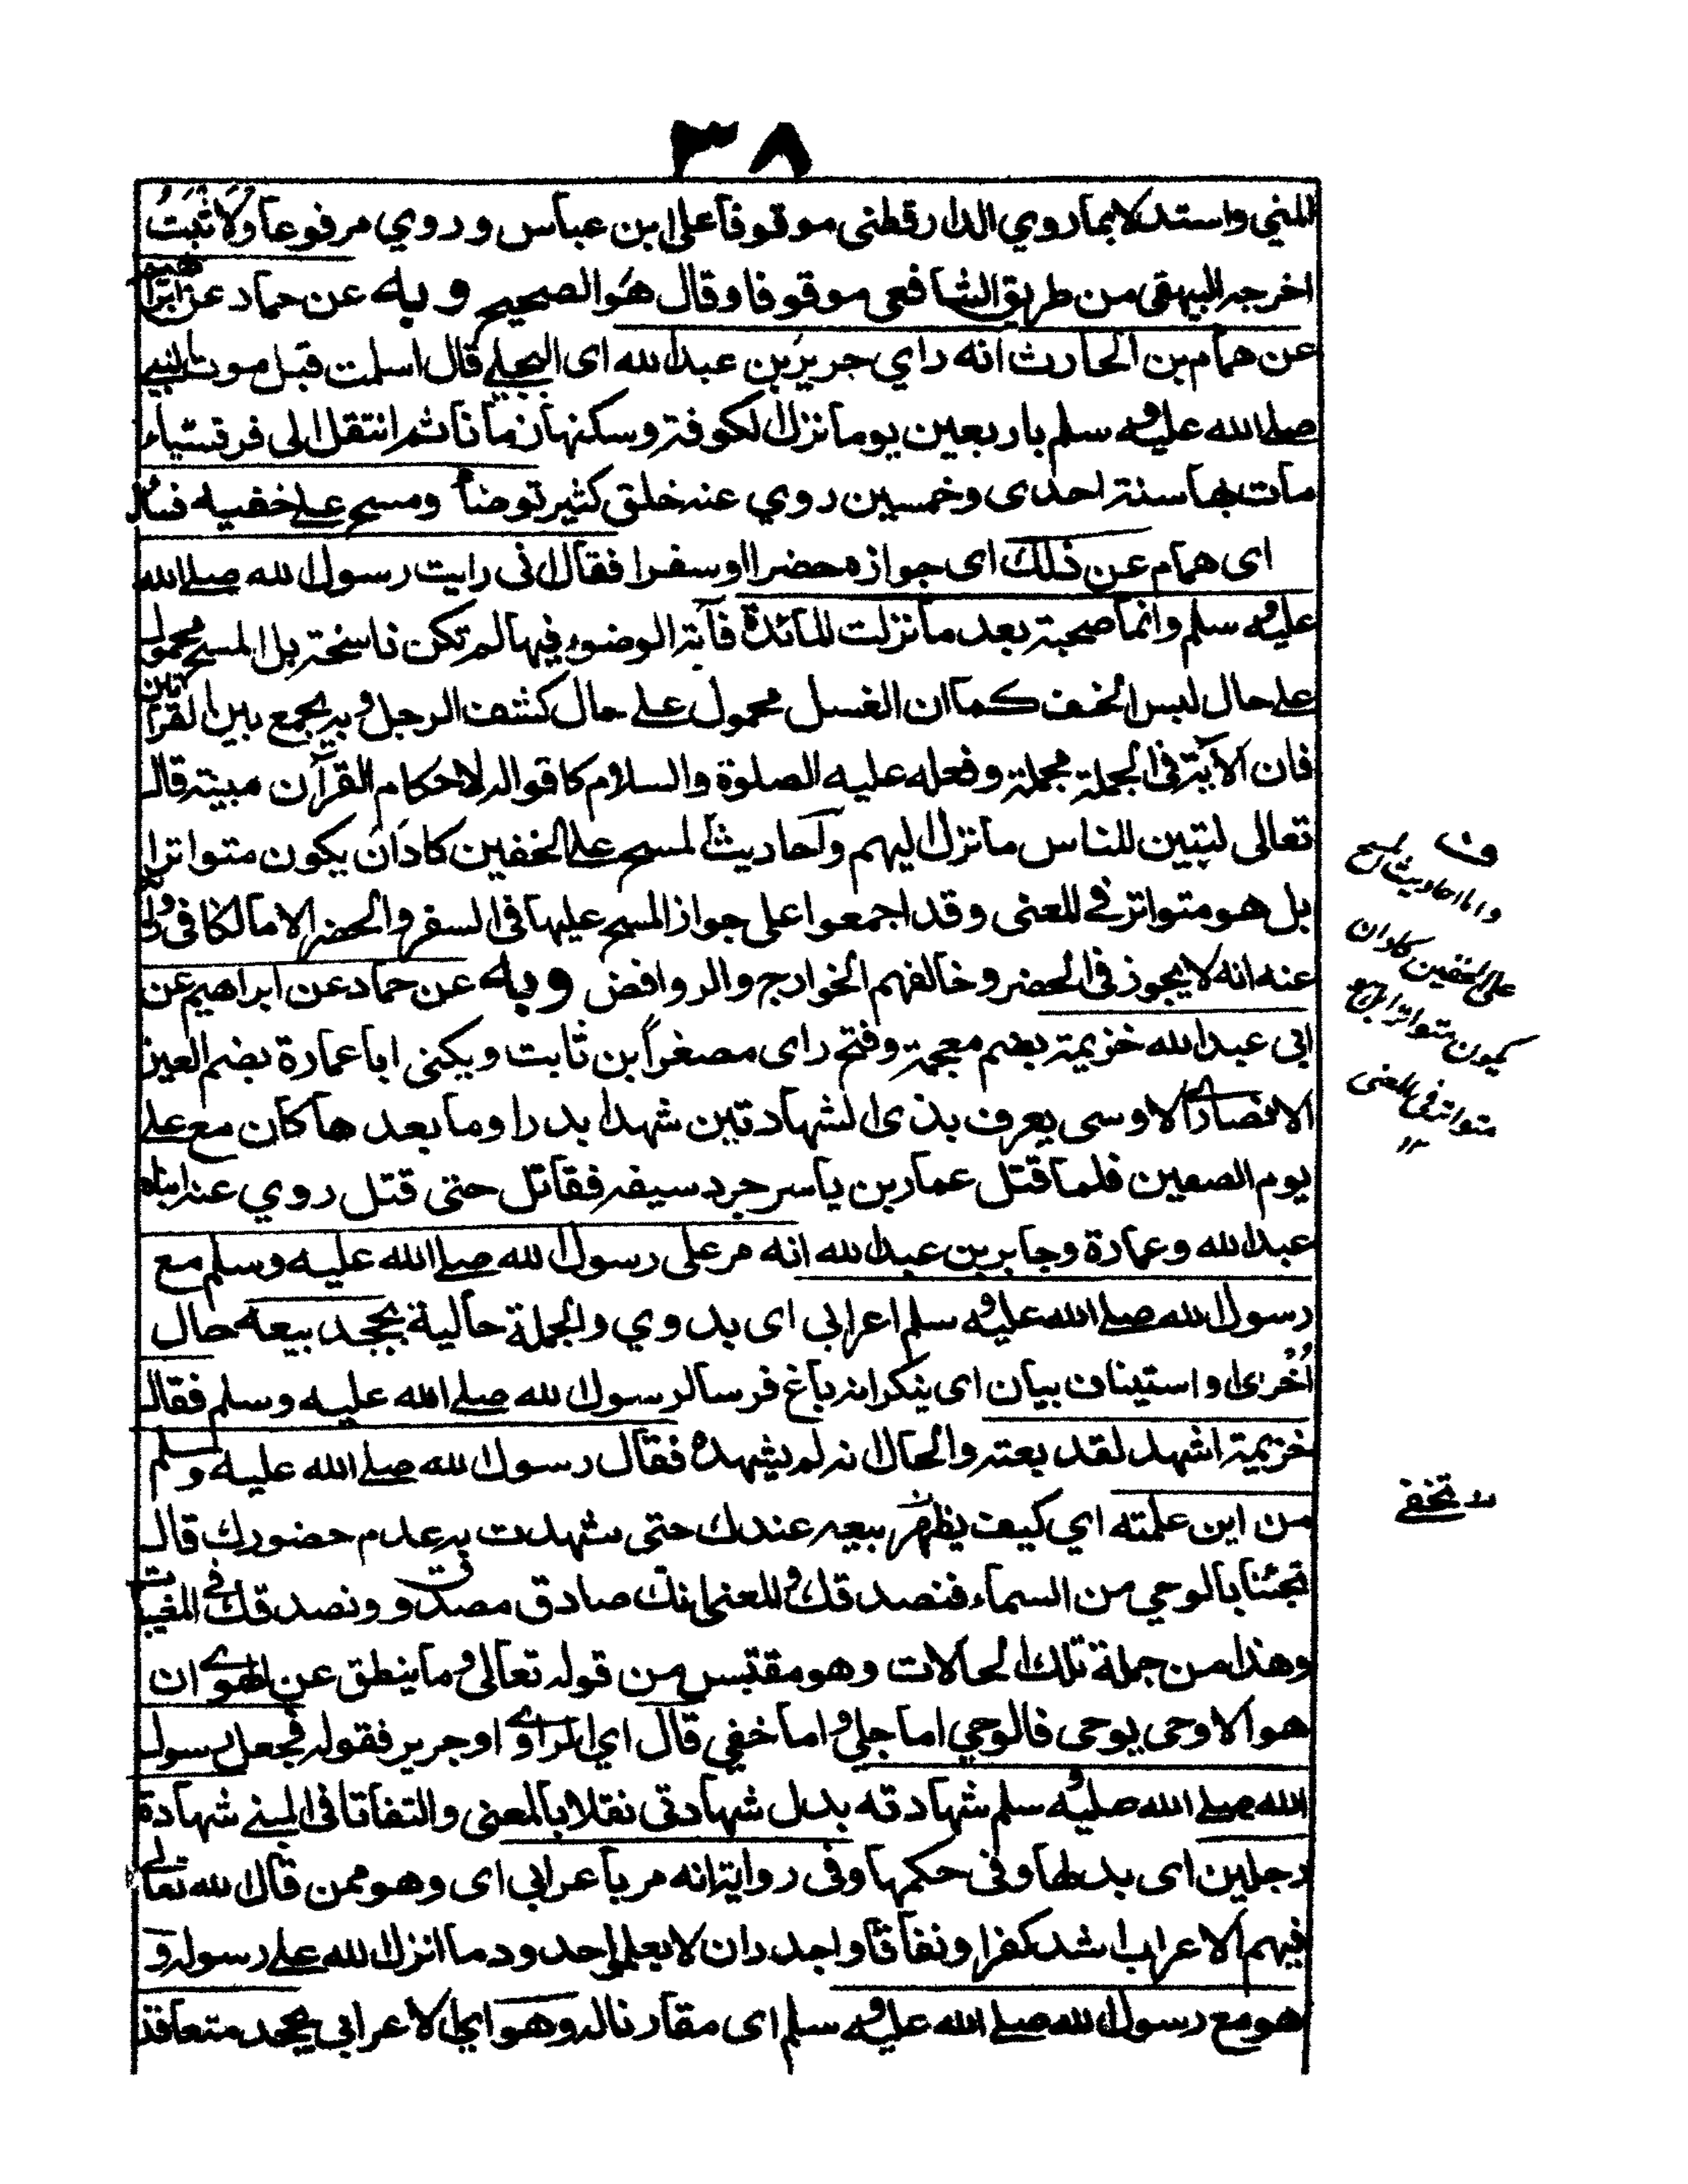 ٣٨
المني واستدلا بما روي الدارقطنى موقوفا على ابن عباس وروي مرفوعا ولا ثبت
اخرجه البيهقى من طريق الشافعى موقوفا وقال هو الصحيح وبه عن حماد عن ابراهيم
عن همام بن الحارث انه راي جرير بن عبد الله اى البجلي قال اسلمت قبل موت النبي
صلى الله عليه وسلم باربعين يوما نزل الكوفة وسكنها زمانا ثم انتقل الى قرقسياء
مات بها سنة احدى وخمسين روي عنه خلق كثير توضأ ومسح على خفيه فسأل
اى همام عن ذلك اى جوازه حضرا او سفرا فقال انى رايت رسول الله صلى الله
عليه وسلم وانما صحبته بعد ما نزلت المائدة فآية الوضوء فيها لم تكن ناسخة بل المسح محمول
على حال لبس الخف كما ان الغسل محمول على حال كشف الرجل وبه يجمع بين القرأتين
فان الآية فى الجملة مجملة وفعله عليه الصلوة والسلام كاقواله لاحكام القرآن مبينة قال
تعالى لتبين للناس ما نزل اليهم وآحاديث المسح على الخفين كاد ان يكون متواترا
بل هو متواتر في المعنى وقد اجمعوا على جواز المسح عليها فى السفر والحضر الا مالكا فى
عنه انه لا يجوز فى الحضر وخالفهم الخوارج والروافض وبه عن حماد عن ابراهيم عن
ابى عبد الله خزيمة بضم معجمة وفتح راى مصغرا بن ثابت ويكنى ابا عمارة بضم العين
الانصاري الاوسى يعرف بذى الشهادتين شهد بدرا وما بعدها كان مع على
يوم الصفين فلما قتل عمار بن ياسر جرد سيفه فقاتل حتى قتل روي عنه ابناه
عبد الله وعمارة وجابر بن عبد الله انه مر على رسول الله صلى الله عليه وسلم مع
رسول الله صلى الله عليه وسلم اعرابى اى بدوي والجملة حالية يجحد بيعه حال
اخرى او استيناف بيان اى ينكر انه باع فرسا لرسول الله صلى الله عليه وسلم فقال
خزيمة اشهد لقد بعته والحال انه لم يشهده فقال رسول الله صلى الله عليه وسلم
من اين علمته اي كيف يظهر بيعه عندك حتى شهدت به عدم حضورك قال
تجئنا بالوحي من السماء فنصدقك والمعنى انك صادق مصدوق ونصدقك في المغيبات
وهذا من جملة تلك الحالات وهو مقتبس من قوله تعالى وما ينطق عن الهوى ان
هو الا وحى يوحى فالوحي اما جلي واما خفي قال اي الراوي او جرير فقوله فجعل رسول
الله صلى الله عليه وسلم شهادته بدل شهادتى نقلا بالمعنى والتفاتا فى المبنى شهادة
رجلين اى بدلها وفى حكمها وفى رواية انه مر باعرابى اى وهو ممن قال الله تعالى
فيهم الاعراب اشد كفرا ونفاقا واجدر ان لا يعلموا حدود ما انزل الله على رسوله و
هو مع رسول الله صلى الله عليه وسلم اى مقارنا له وهو اي الاعرابى يجحد متعاقد
واما احاديث المسح
على الخفين كاد ان
يكون متواترا بل هو
متواتر فى المعنى
تخفى